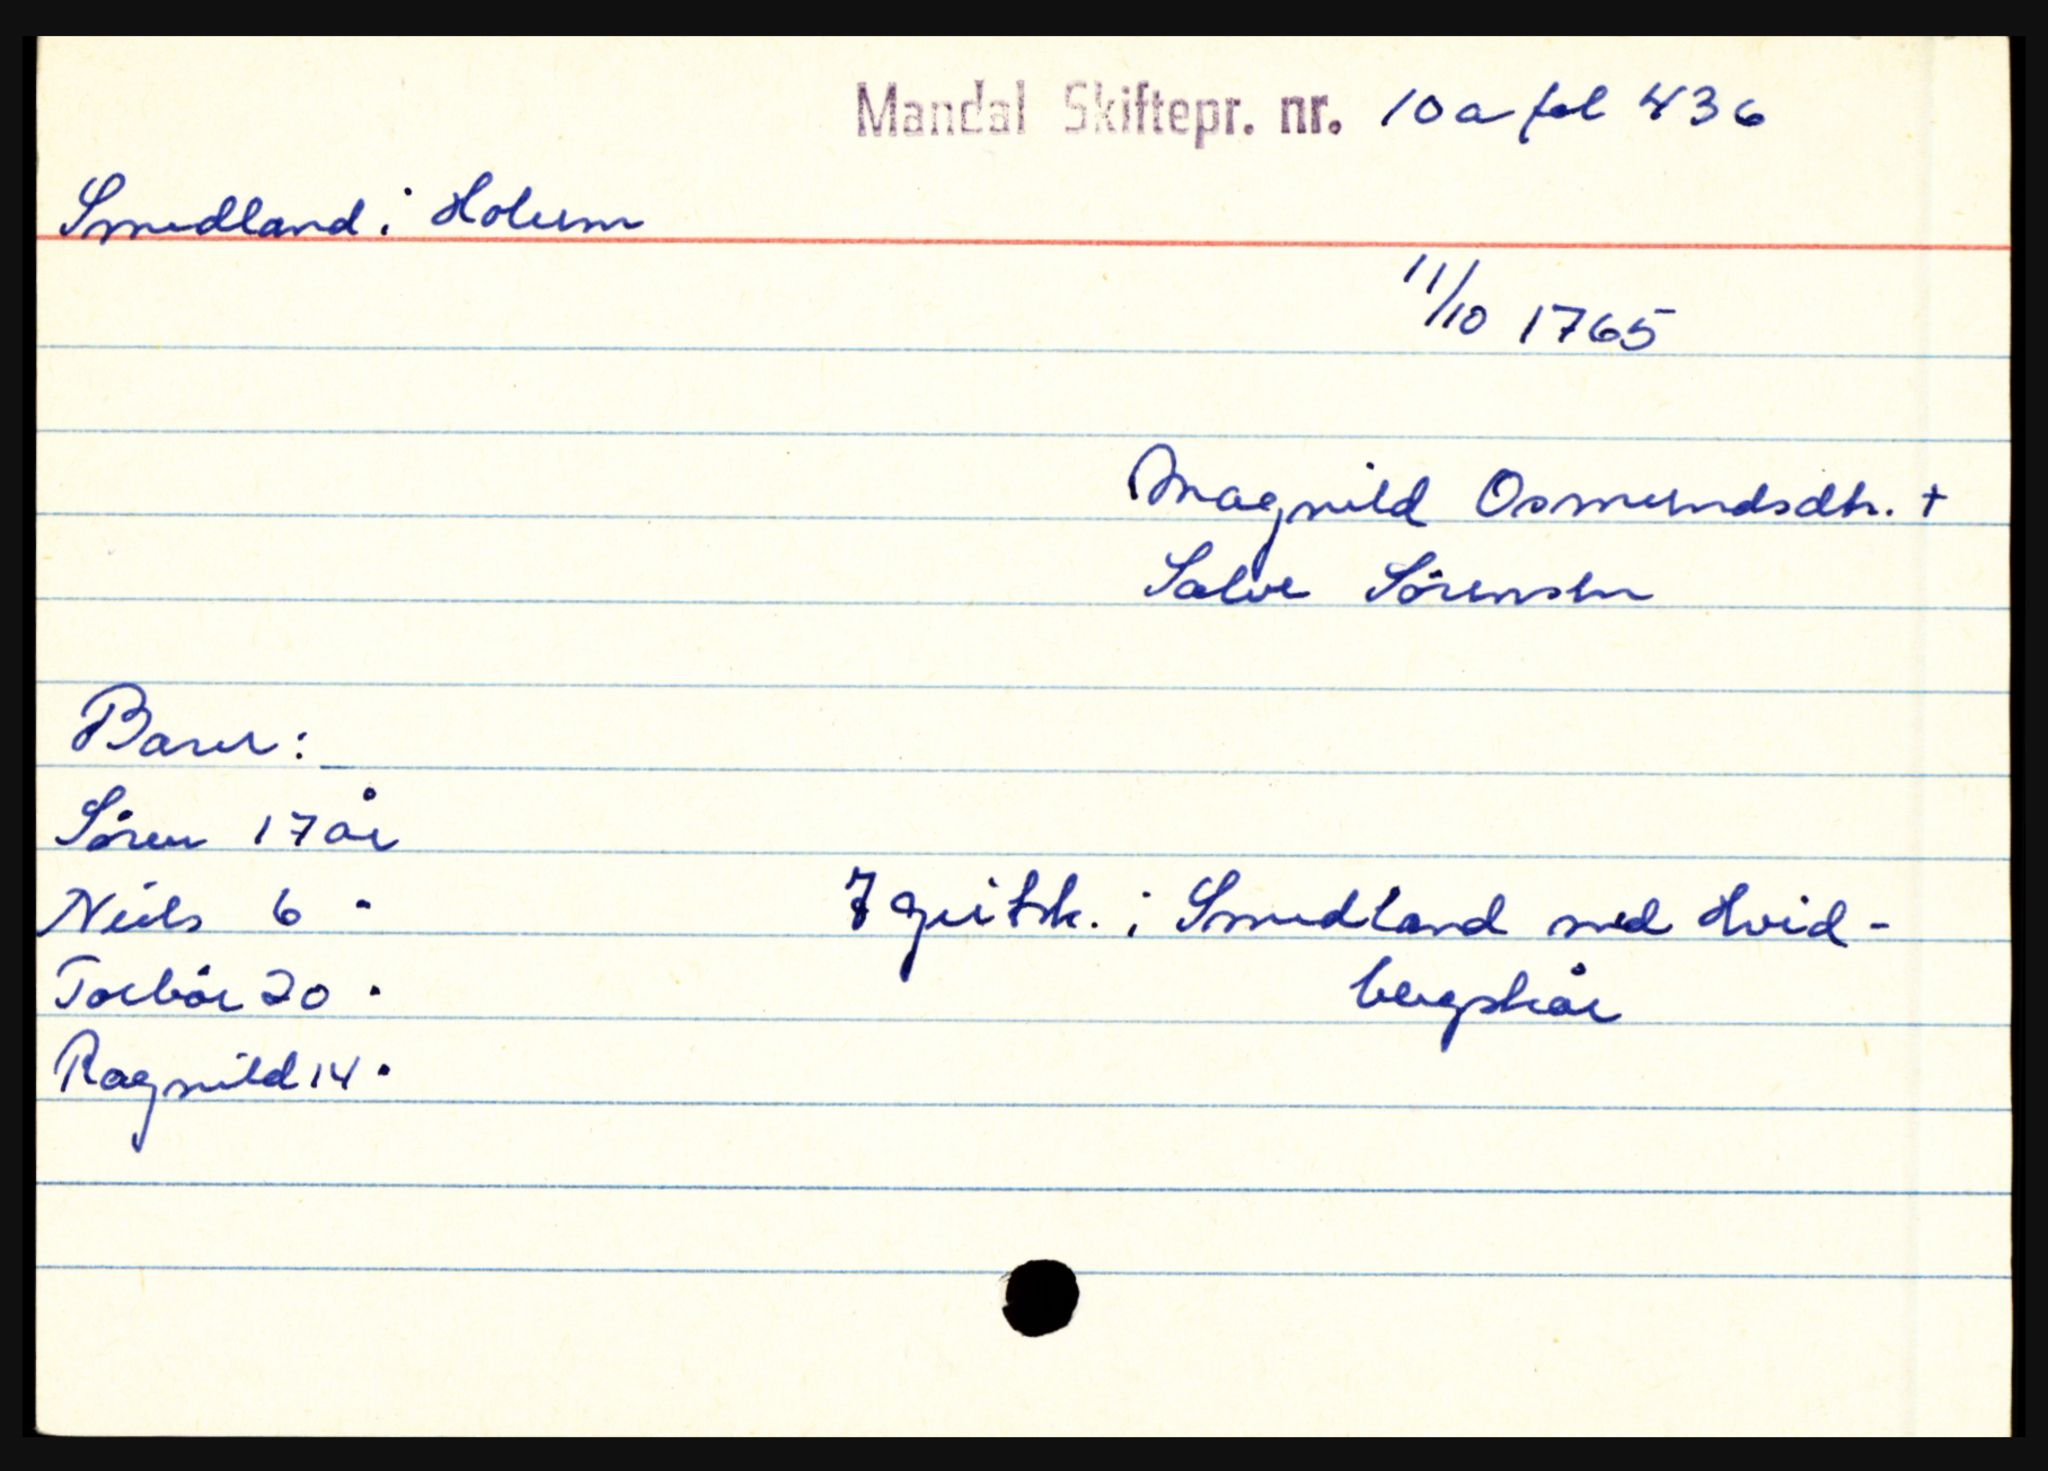 Mandal Skiftepr. nr. 10 a fol 436
Smedland i Holum
11/10 1765
Magnild Osmundsdtr. +
Salve Sörensen
Barn:
Sören 17 år
Niels 6 "
Torbår 20 "
Ragnild 14 "
7 geitsk. i Smedland med Hvid-
bergskår